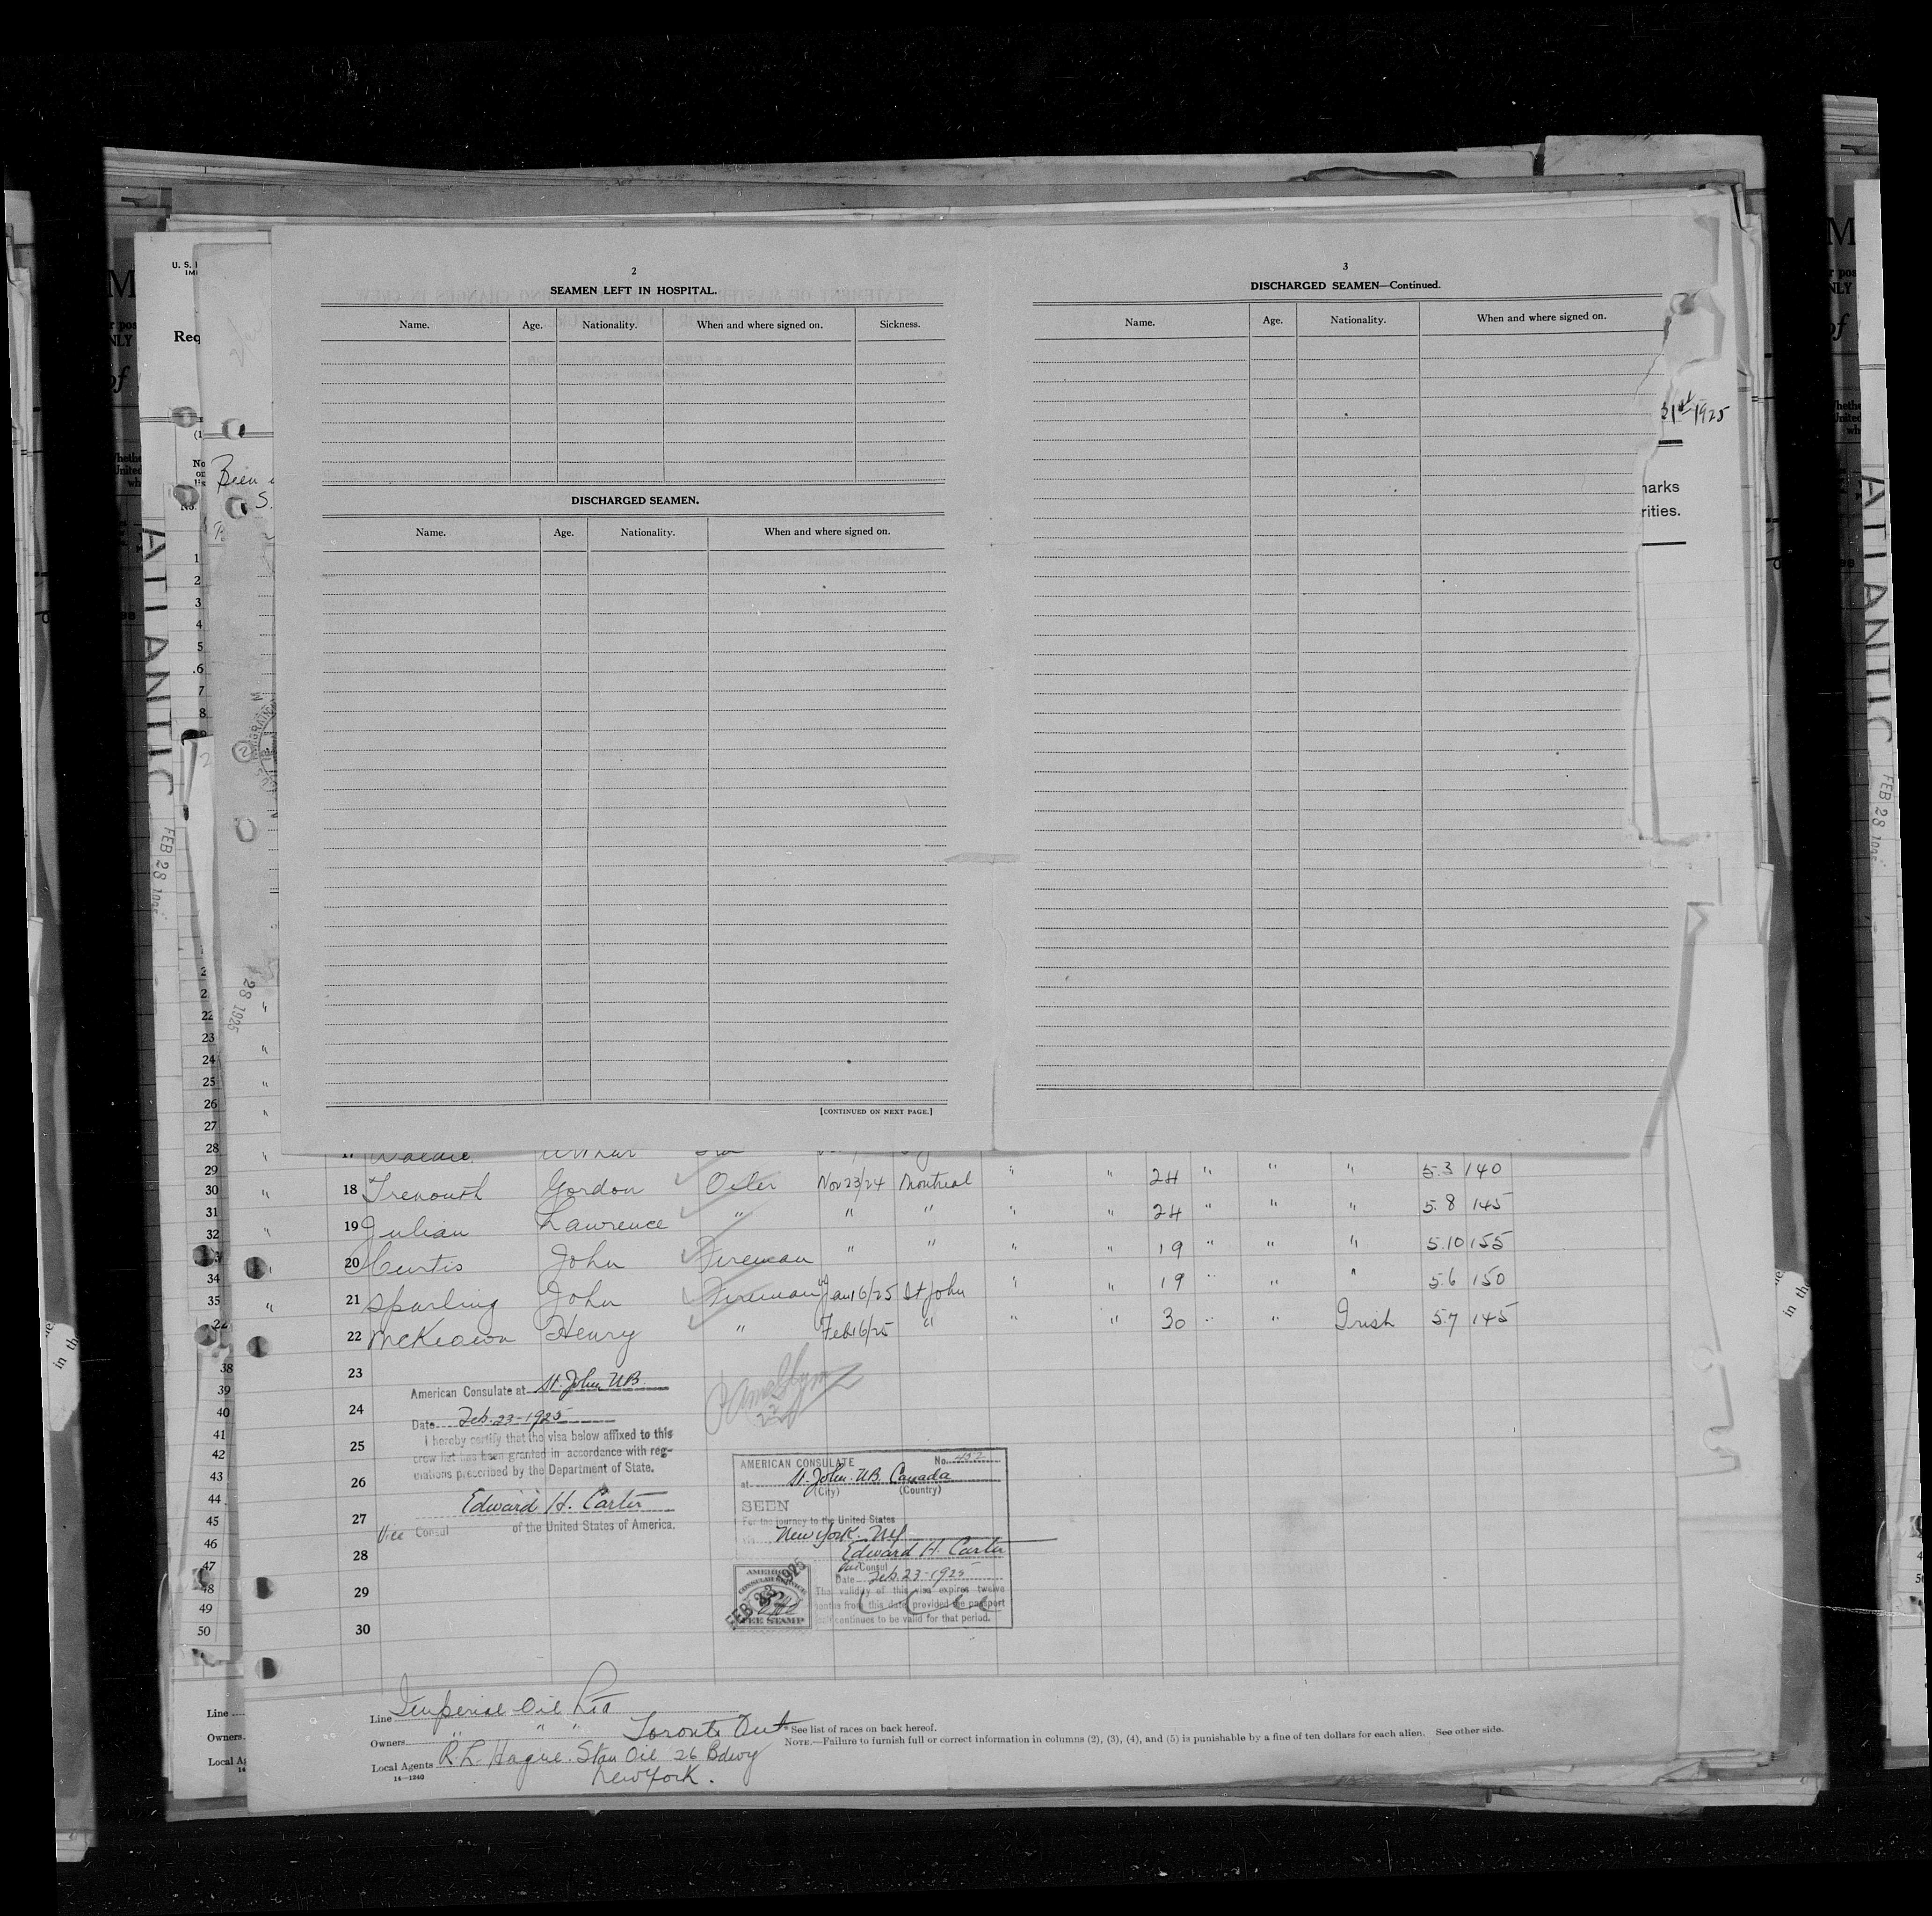 2
SEAMEN LEFT IN HOSPITAL.
Name. Age. Nationality. When and where signed on. Sickness.
DISCHARGED SEAMEN.
Name. Age. Nationality. When and where signed on.
[CONTINUED ON NEXT PAGE.]
3
DISCHARGED SEAMEN—Continued.
Name. Age. Nationality. When and where signed on.
31st 1925
ATLANTIC
FEB 28
28 1925
Been
5 3 140
18 Trenouth Gordon Oiler Nov 23/24 Montreal " " 24 " " " 5.8 145
19 Julian Lawrence " " " " " 24 " " " 5.10 155
20 Curtis John Fireman " " " " 19 " " "
21 Sparling John Fireman Jan 16/25 St John " " 19 " " " 5.6 150
22 McKeown Henry " Feb 16/25 " " " 30 " " Irish 5.7 145
23
24
25
26
27
28
29
30
American Consulate at St. John N.B.
Date Feb. 23-1925
I hereby certify that the visa below affixed to this
crew list has been granted in accordance with reg-
ulations prescribed by the Department of State.
Edward H. Carter
Vice Consul of the United States of America.
AMERICAN CONSULATE No. 452
at St. John. N.B. Canada
(City) (Country)
SEEN
For the journey to the United States
New York. N.Y.
Edward H. Carter
Vice Consul
Date Feb. 23-1925
The validity of this visa expires twelve
months from this date, provided the passport
itself continues to be valid for that period.
AMERICAN
CONSULAR SERVICE
FEB 23 1925
FEE STAMP
Line Imperial Oil Ltd
Owners " " " Toronto Ont
Local Agents R. L. Hague. Stan Oil 26 Bdwy
New York.
14—1240
* See list of races on back hereof.
NOTE.—Failure to furnish full or correct information in columns (2), (3), (4), and (5) is punishable by a fine of ten dollars for each alien. See other side.